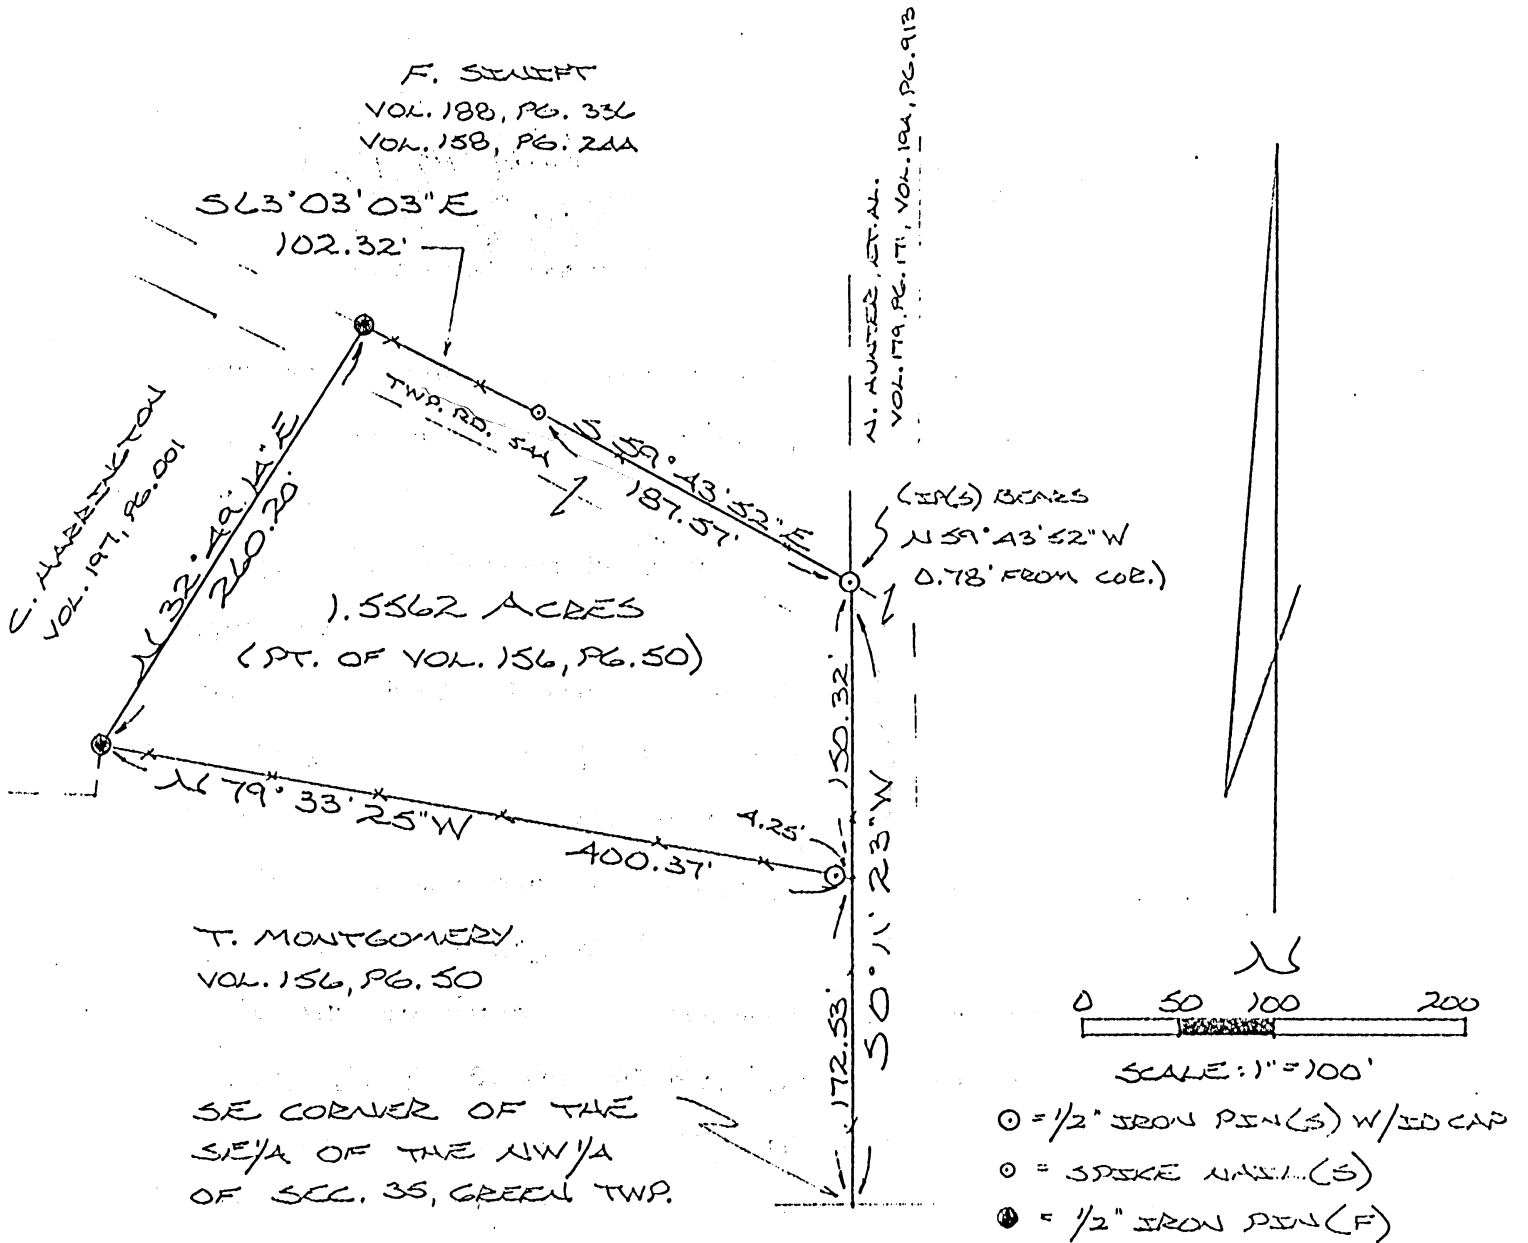 F. SINIFT
VOL. 188, PG. 336
VOL. 158, PG. 244
S63°03'03"E
102.32'
N. HUNTER, ET. AL.
VOL. 179, PG. 171, VOL. 194, PG. 913
TWP. RD. 544
S 59°43'52"E
187.57'
(IP(S) BEARS
N59°43'52"W
0.78' FROM COR.)
C. HARRINGTON
VOL. 197, PG. 001
N 32°49'14"E
260.20'
1.5562 ACRES
(PT. OF VOL. 156, PG. 50)
150.32'
N 79°33'25"W
400.37'
4.25'
S0°11'23"W
172.53'
T. MONTGOMERY
VOL. 156, PG. 50
SE CORNER OF THE
SE1/4 OF THE NW1/4
OF SEC. 35, GREEN TWP.
N
0 50 100 200
SCALE: 1"=100'
= 1/2" IRON PIN(S) W/ID CAP
= SPIKE NAIL(S)
= 1/2" IRON PIN(F)